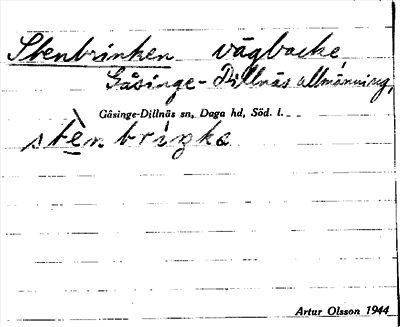 Stenbrinken vägbacke,
Gåsinge-Dillnäs allmänning,
Gåsinge-Dillnäs sn, Daga hd, Söd. l.
stèn briŋka
Artur Olsson 1944